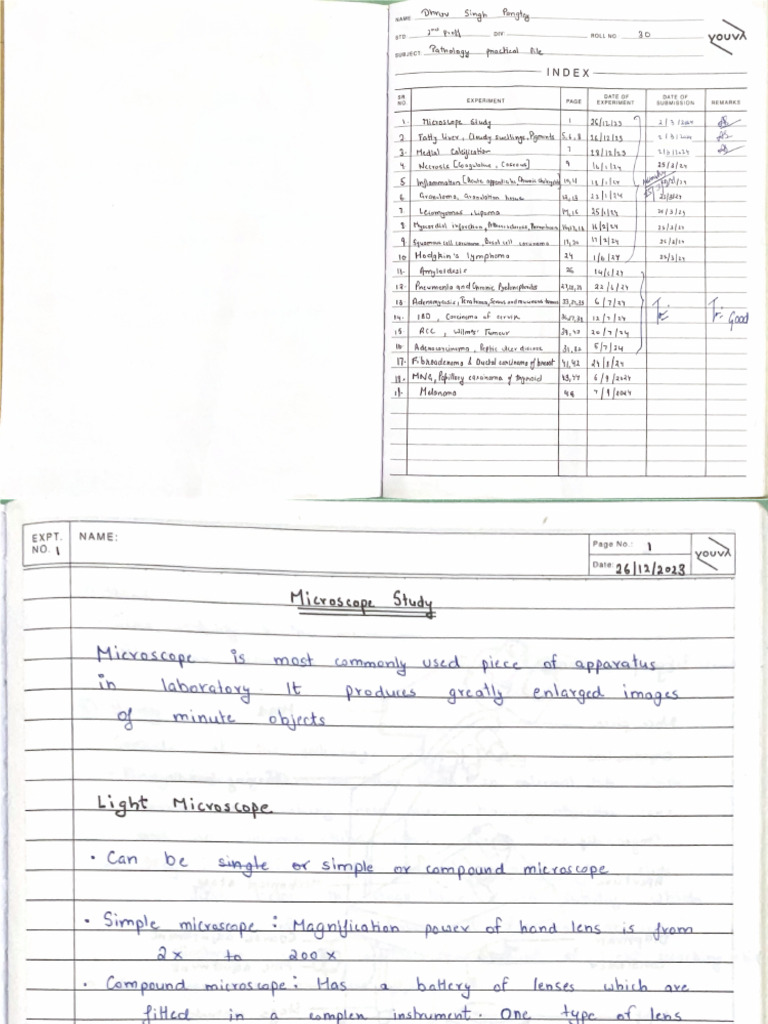 NAME Dhruv Singh Pangtey
STD. 2nd Proff DIV. ROLL NO. 30
SUBJECT Pathology practical file
youva
INDEX
SR. NO. EXPERIMENT PAGE DATE OF EXPERIMENT DATE OF SUBMISSION REMARKS
1. Microscope Study 1 26/12/23 2/3/2024
2 Fatty liver, Cloudy swellings, Pigments 5,6,8 26/12/23
3. Medial Calcification 7 28/12/23
4 Necrosis [Coagulative, Caseous] 9 16/1/24 25/3/24
5 Inflammation [Acute appendicitis, Chronic
6 Granuloma, Granulation tissue 22/1/24
7 Leiomyoma, Lipoma 25/1/24 26/3/24
8 Myocardial infarction, Atherosclerosis, 16/2/24 26/3/24
9 Squamous cell carcinoma, Basal cell carcinoma 19,20 17/2/24 26/3/24
10 Hodgkin's lymphoma 24 1/6/24 26/3/24
11. Amyloidosis 26 14/6/24
12. Pneumonia and Chronic Pyelonephritis 22/6/24
13 Adenomyosis, Teratoma, Serous and mucinous 6/7/24
14. IBD, Carcinoma of cervix 12/7/24 Good
15 RCC, Wilms' Tumour 20/7/24
16 Adenocarcinoma, Peptic ulcer disease 5/7/24
17. Fibroadenoma & Ductal carcinoma of breast 41,42 24/8/24
18. MNG, Papillary carcinoma of thyroid 43,44 6/9/2024
19. Melanoma 46 7/9/2024
EXPT. NO. 1 NAME: Page No.: 1 youva
Date: 26/12/2023
Microscope Study
Microscope is most commonly used piece of apparatus
in laboratory It produces greatly enlarged images
of minute objects
Light Microscope
• Can be single or simple or compound microscope
• Simple microscope : Magnification power of hand lens is from
2x to 200x
• Compound microscope: Has a battery of lenses which are
fitted in a complex instrument. One type of lens